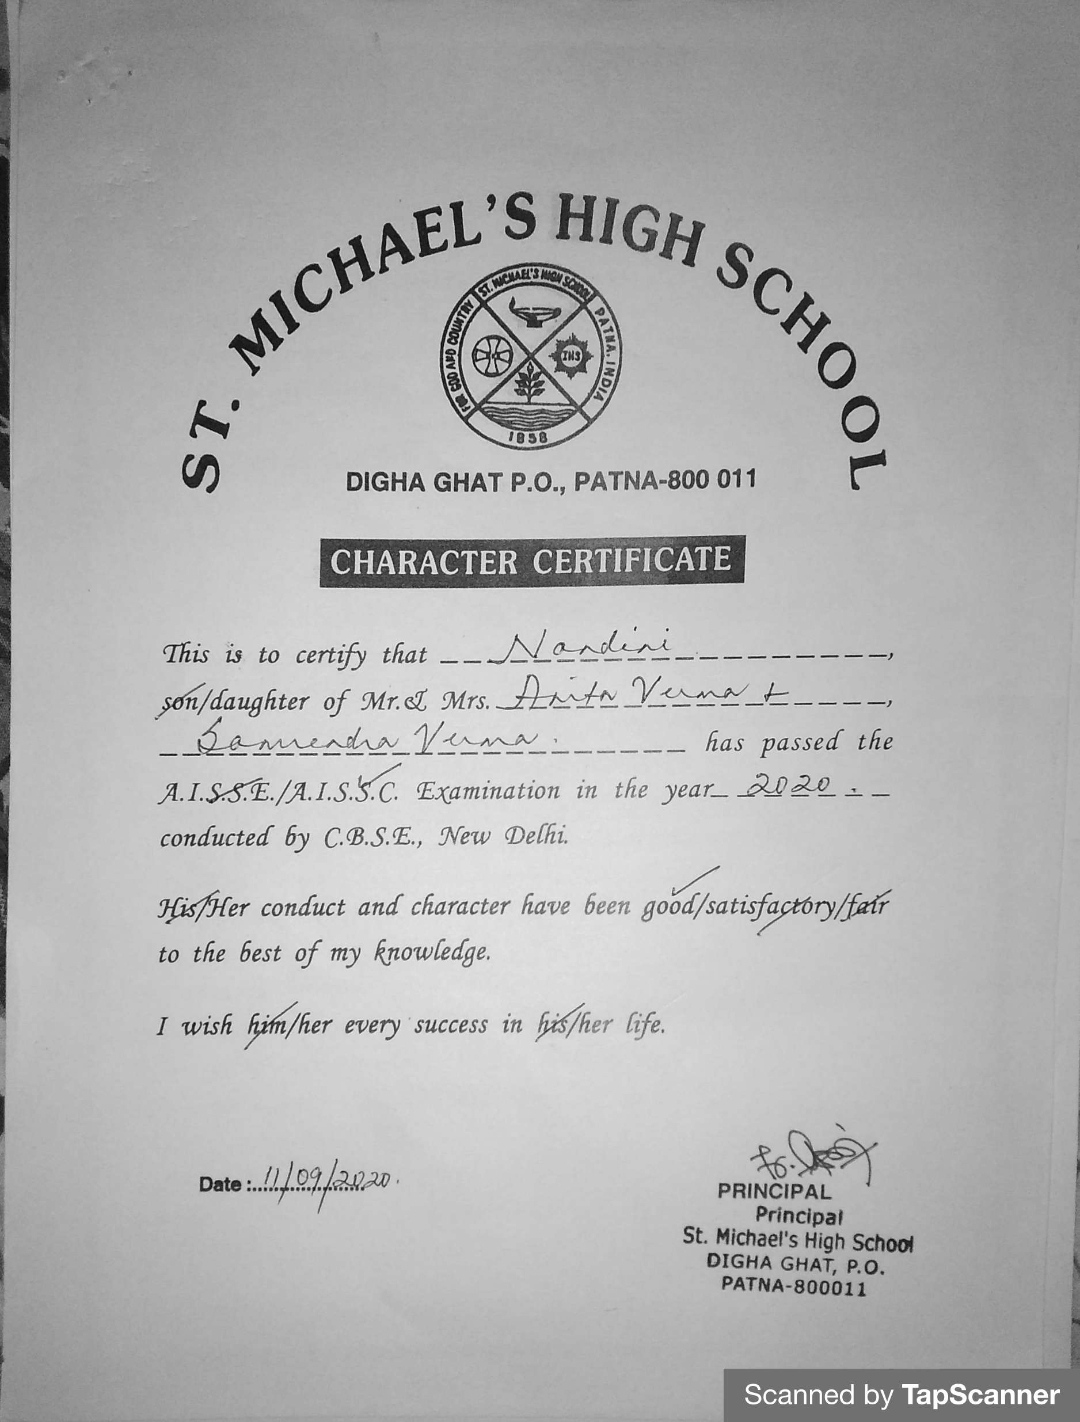 ST. MICHAEL'S HIGH SCHOOL
ST. MICHAEL'S HIGH SCHOOL
FOR GOD AND COUNTRY
PATNA. INDIA
IHS
1858
DIGHA GHAT P.O., PATNA-800 011
CHARACTER CERTIFICATE
This is to certify that Nandini,
son/daughter of Mr.& Mrs. Anita Verma +,
Samrendra Verma. has passed the
A.I.S.S.E./A.I.S.S.C. Examination in the year 2020.
conducted by C.B.S.E., New Delhi.
His/Her conduct and character have been good/satisfactory/fair
to the best of my knowledge.
I wish him/her every success in his/her life.
Date : 11/09/2020.
PRINCIPAL
Principal
St. Michael's High School
DIGHA GHAT, P.O.
PATNA-800011
Scanned by TapScanner